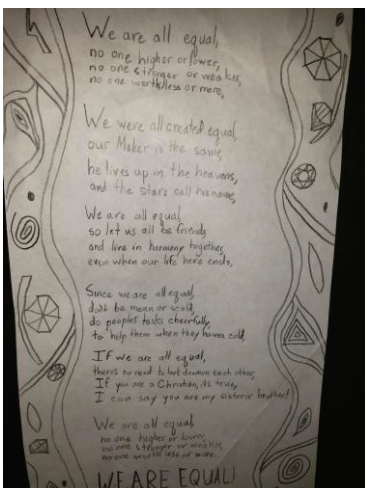 We are all equal,
no one higher or lower,
no one stronger or weaker,
no one worth less or more,
We were all created equal,
our Maker is the same,
he lives up in the heavens,
and the stars call his name,
We are all equal,
so let us all be friends,
and live in harmony together,
even when our life here ends.
Since we are all equal,
don't be mean or scold,
do peoples tasks cheerfully,
to help them when they have a cold,
If we are all equal,
theres no need to look down on each other,
If you are a Christian, its true,
I can say you are my sister or brother!
We are all equal,
no one higher or lower,
no one stronger or weaker,
no one worth less or more.
WE ARE EQUAL!